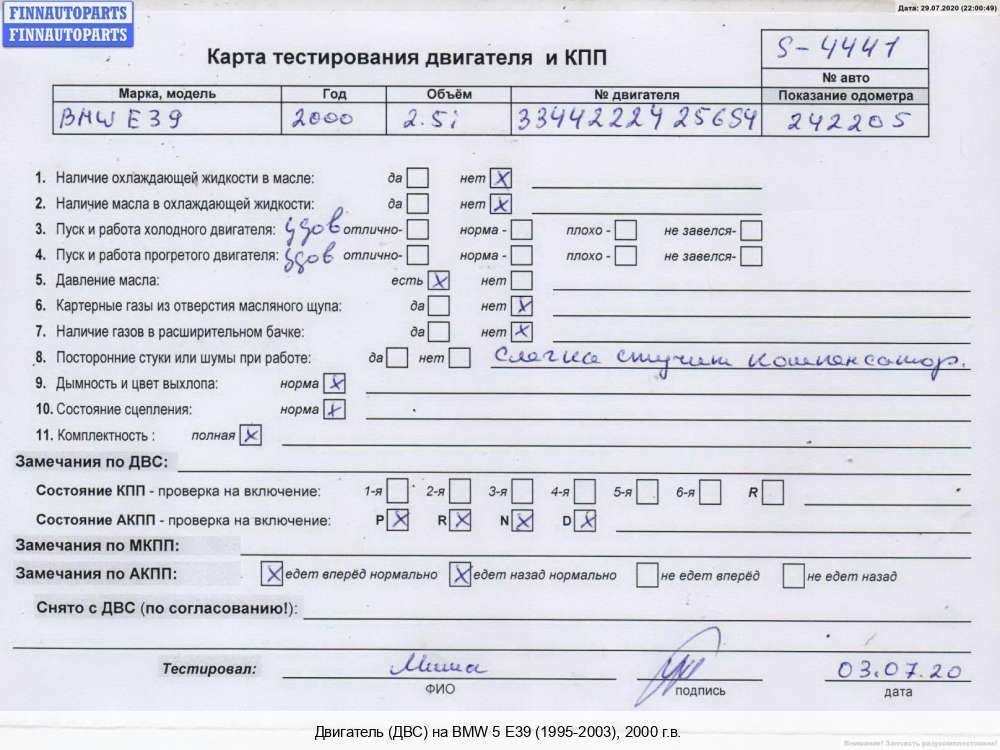 FINNAUTOPARTS
FINNAUTOPARTS
Дата: 29.07.2020 (22:00:49)
Карта тестирования двигателя и КПП
S-4441
№ авто
Марка, модель Год Объём № двигателя Показание одометра
BMW E39 2000 2.5i 33442224 256S4 242205
1. Наличие охлаждающей жидкости в масле: да нет X
2. Наличие масла в охлаждающей жидкости: да нет X
3. Пуск и работа холодного двигателя: удов отлично- норма - плохо - не завелся-
4. Пуск и работа прогретого двигателя: удов отлично- норма - плохо - не завелся-
5. Давление масла: есть X нет
6. Картерные газы из отверстия масляного щупа: да нет X
7. Наличие газов в расширительном бачке: да нет X
8. Посторонние стуки или шумы при работе: да нет Слегка стучит компенсатор.
9. Дымность и цвет выхлопа: норма X
10. Состояние сцепления: норма X
11. Комплектность : полная X
Замечания по ДВС:
Состояние КПП - проверка на включение: 1-я 2-я 3-я 4-я 5-я 6-я R
Состояние АКПП - проверка на включение: P X R X N X D X
Замечания по МКПП:
Замечания по АКПП: X едет вперёд нормально X едет назад нормально не едет вперёд не едет назад
Снято с ДВС (по согласованию!):
Тестировал: Миша 03.07.20
ФИО подпись дата
Двигатель (ДВС) на BMW 5 E39 (1995-2003), 2000 г.в.
Внимание! Запчасть разукомплектована!